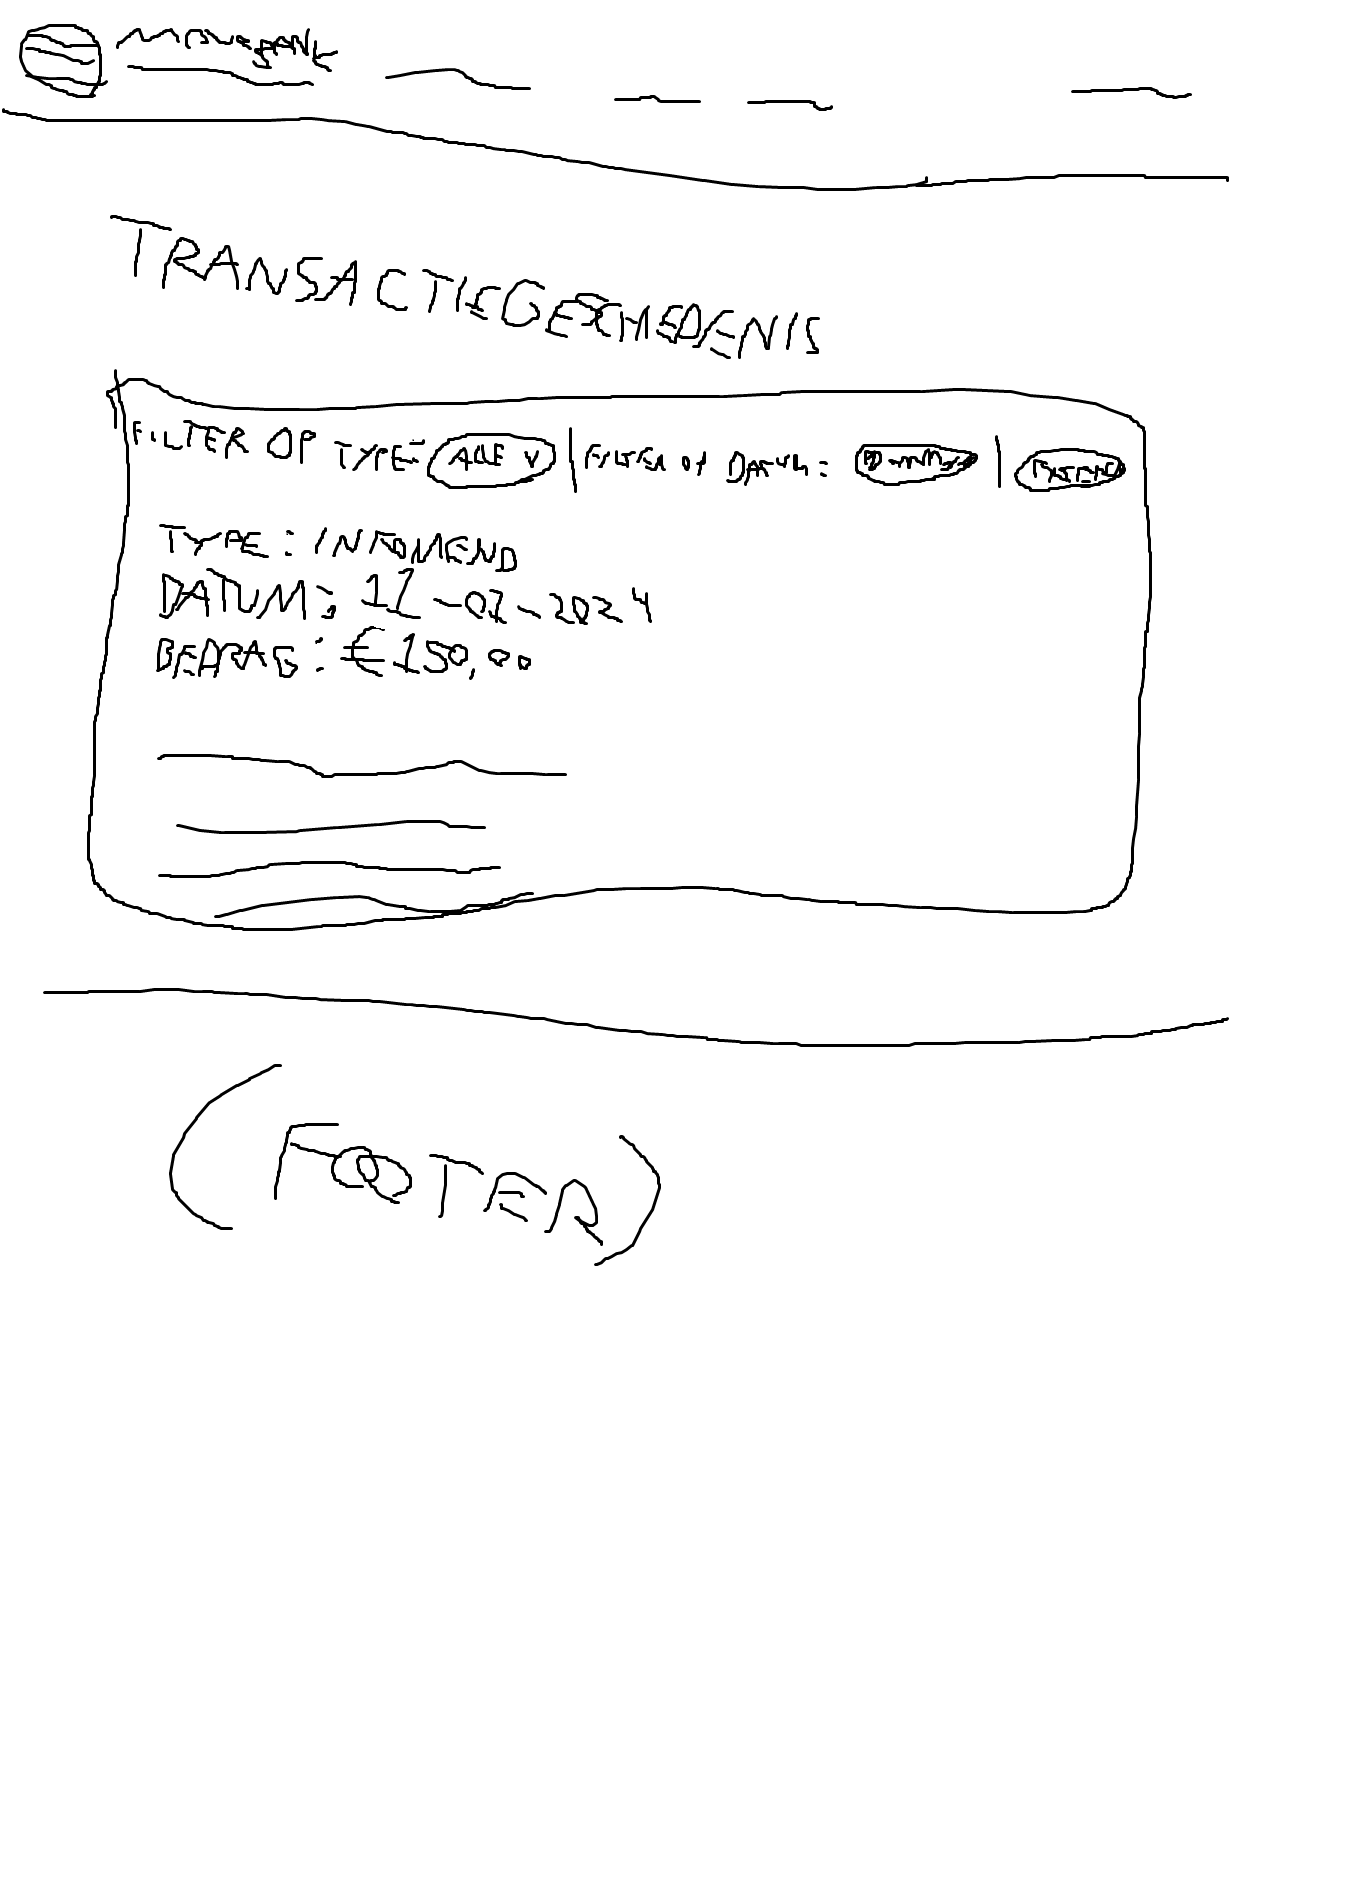 TRANSACTIEGESCHEDENIS
FILTER OP TYPE: ALLE V | FILTER OP DATUM: |
TYPE: INKOMEND
DATUM: 11-01-2024
BEDRAG: €150,00
(FOOTER)